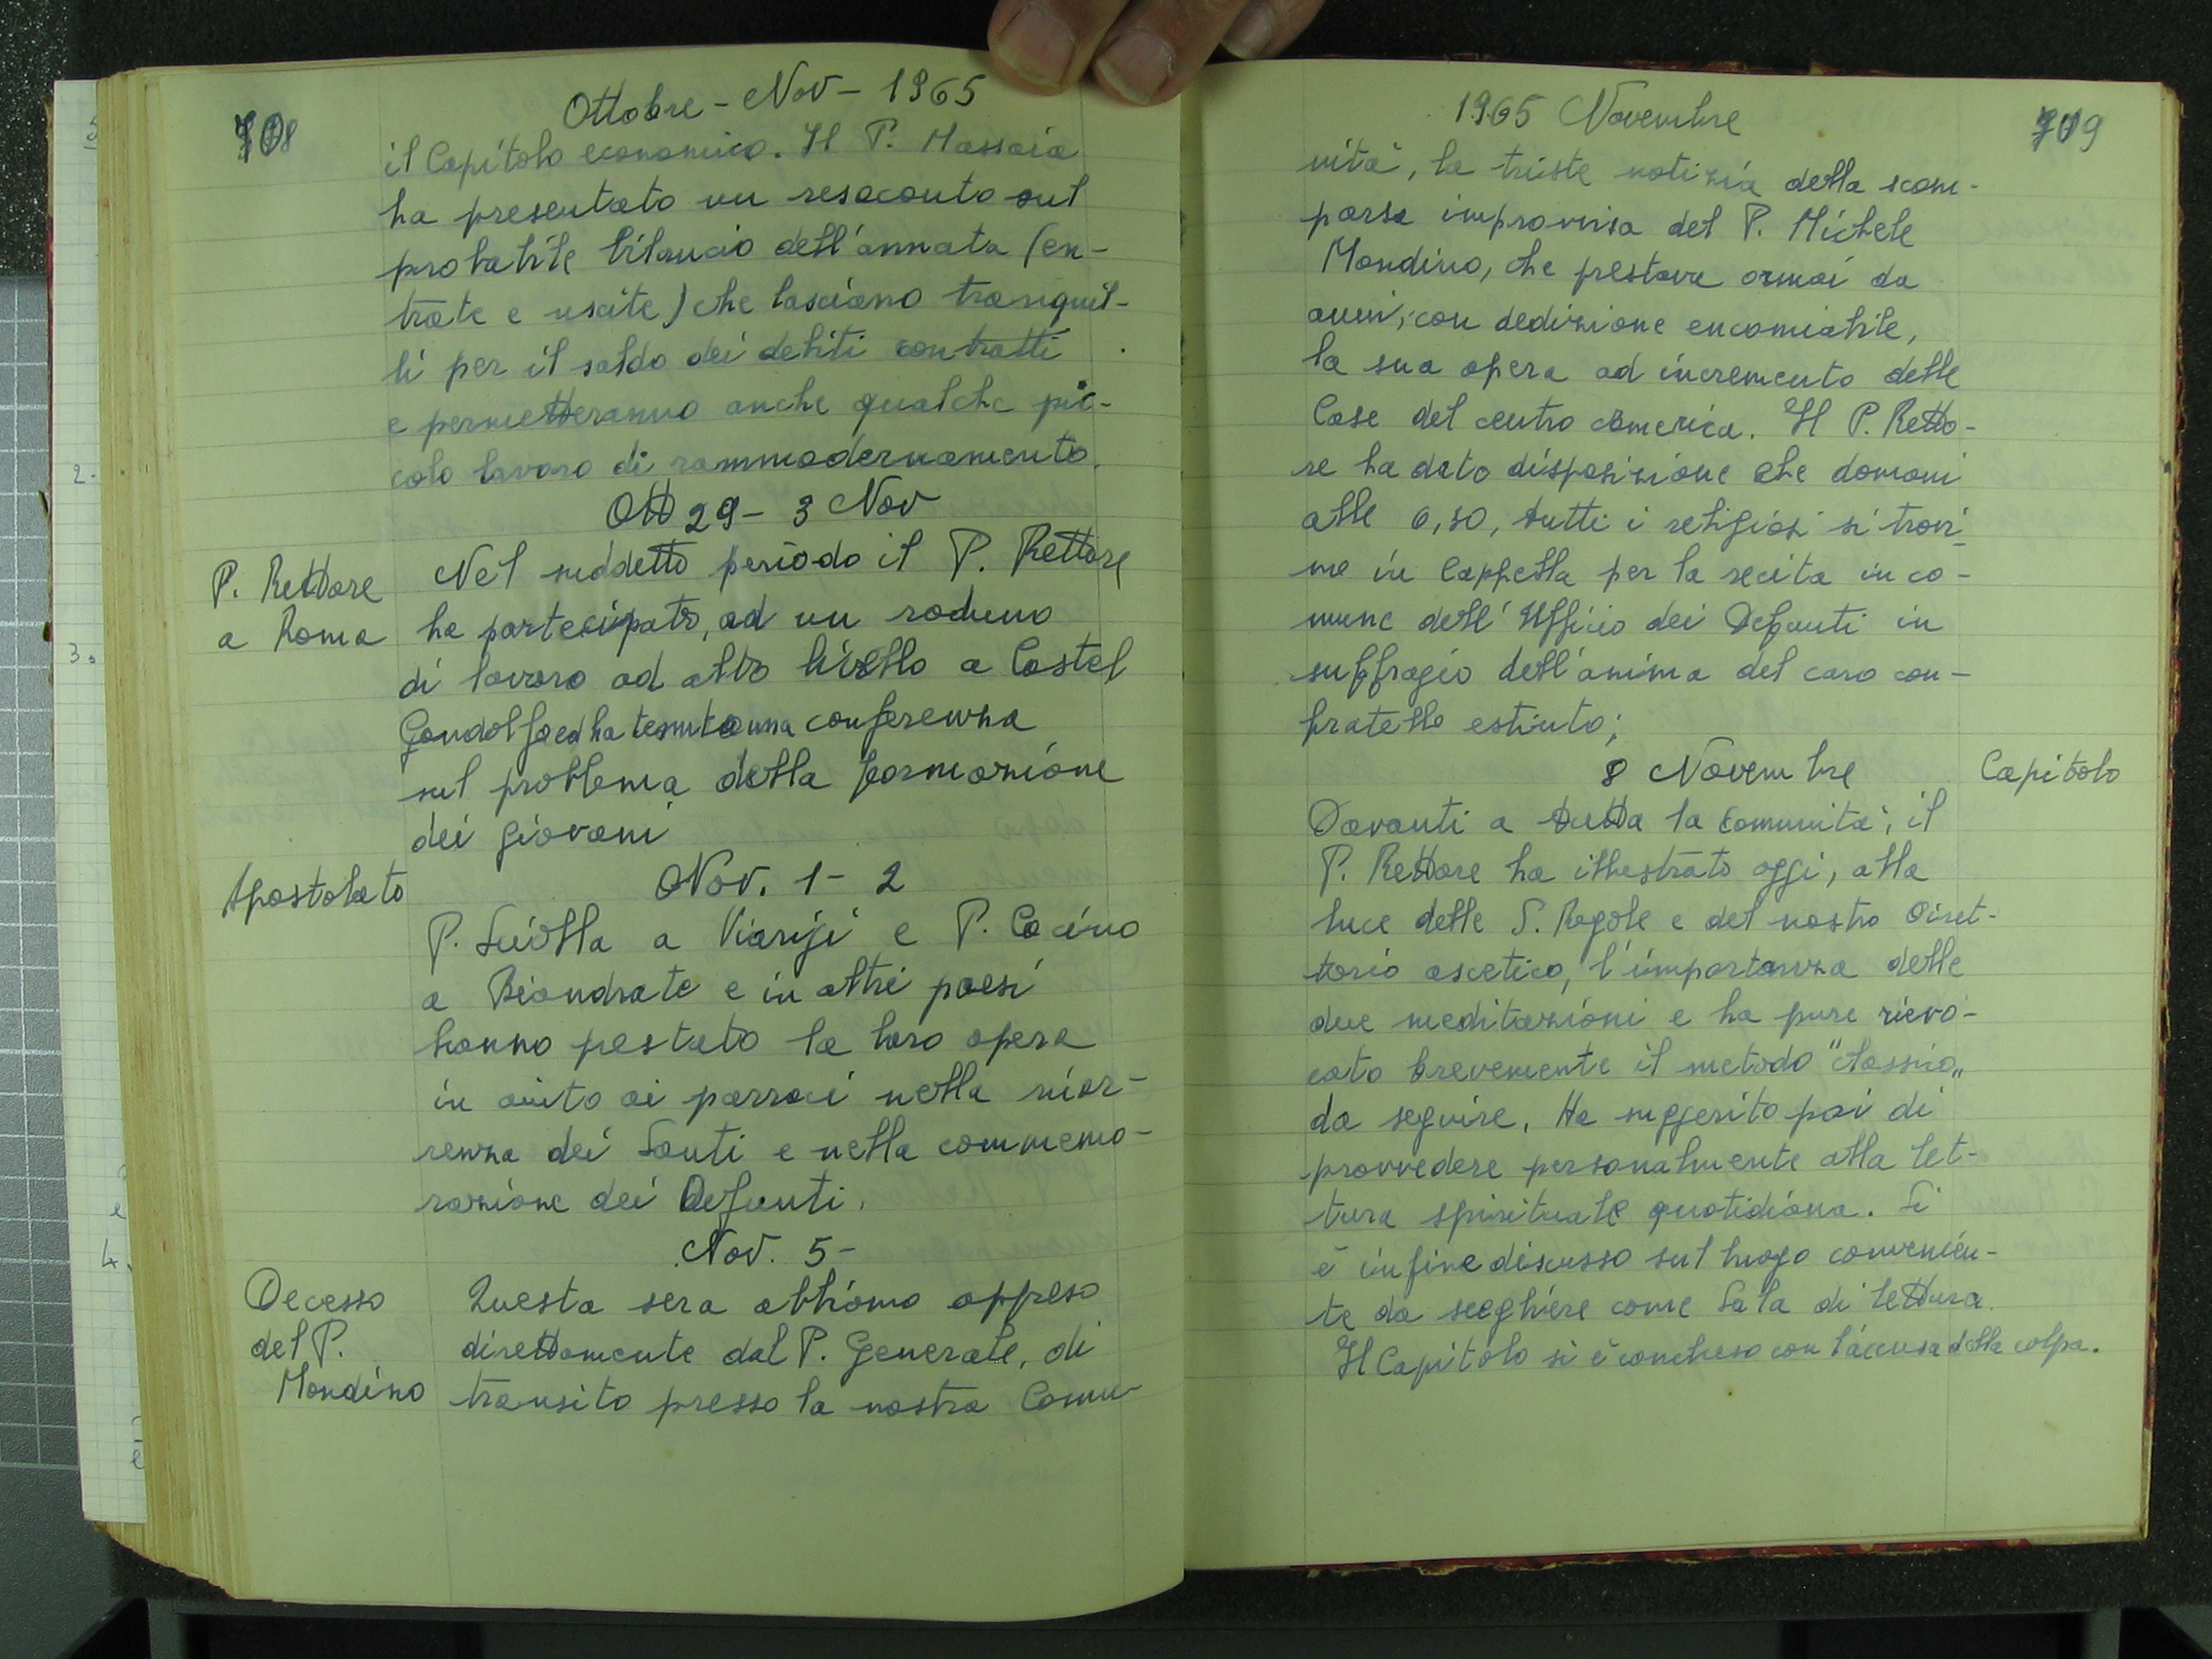 708
Ottobre - Nov - 1965
il Capitolo economico. Il P. Massaia
ha presentato un resoconto sul
probabile bilancio dell'annata (en-
trate e uscite) che lasciano tranquil-
li per il saldo dei debiti contratti
e permetteranno anche qualche pic-
colo lavoro di rammodernamento.
Ott 29 - 3 Nov
P. Rettore
a Roma
Nel suddetto periodo il P. Rettore
ha partecipato, ad un raduno
di lavoro ad alto livello a Castel
Gandolfo ed ha tenuto una conferenza
sul problema della formazione
dei giovani
Apostolato
Nov. 1 - 2
P. Sciolla a Viarigi e P. Cocino
a Biandrate e in altri paesi
hanno prestato la loro opera
in aiuto ai parroci nella ricor-
renza dei Santi e nella commemo-
razione dei Defunti.
Nov. 5 -
Decesso
del P.
Mondino
Questa sera abbiamo appreso
direttamente dal P. Generale, di
transito presso la nostra Comu-
709
1965 Novembre
nità, la triste notizia della scom-
parsa improvvisa del P. Michele
Mondino, che prestava ormai da
anni, con dedizione encomiabile,
la sua opera ad incremento delle
Case del centro america. Il P. Retto-
re ha dato disposizione che domani
alle 6,30, tutti i religiosi si trovi
no in Cappella per la recita in co-
mune dell'Ufficio dei Defunti in
suffragio dell'anima del caro con-
fratello estinto;
8 Novembre
Capitolo
Davanti a tutta la comunità, il
P. Rettore ha illustrato oggi, alla
luce delle S. Regole e del nostro Diret-
torio ascetico, l'importanza delle
due meditazioni e ha pure rievo-
cato brevemente il metodo "classico"
da seguire. Ha suggerito poi di
provvedere personalmente alla let-
tura spirituale quotidiana. Si
è infine discusso sul luogo convenien-
te da scegliere come Sala di lettura.
Il Capitolo si è concluso con l'accusa della colpa.